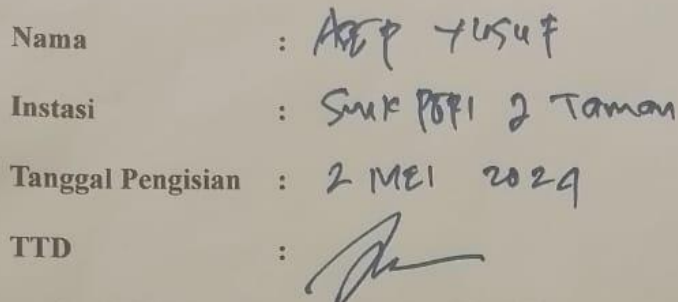 Nama : ASEP YUSUF
Instasi : SMK PGRI 2 Taman
Tanggal Pengisian : 2 MEI 2024
TTD :